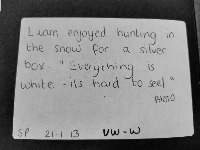 Liam enjoyed hunting in
the snow for a silver
box. "Everything is
white - its hard to see!"
PHOTO
SP 21.1.13 UW-W